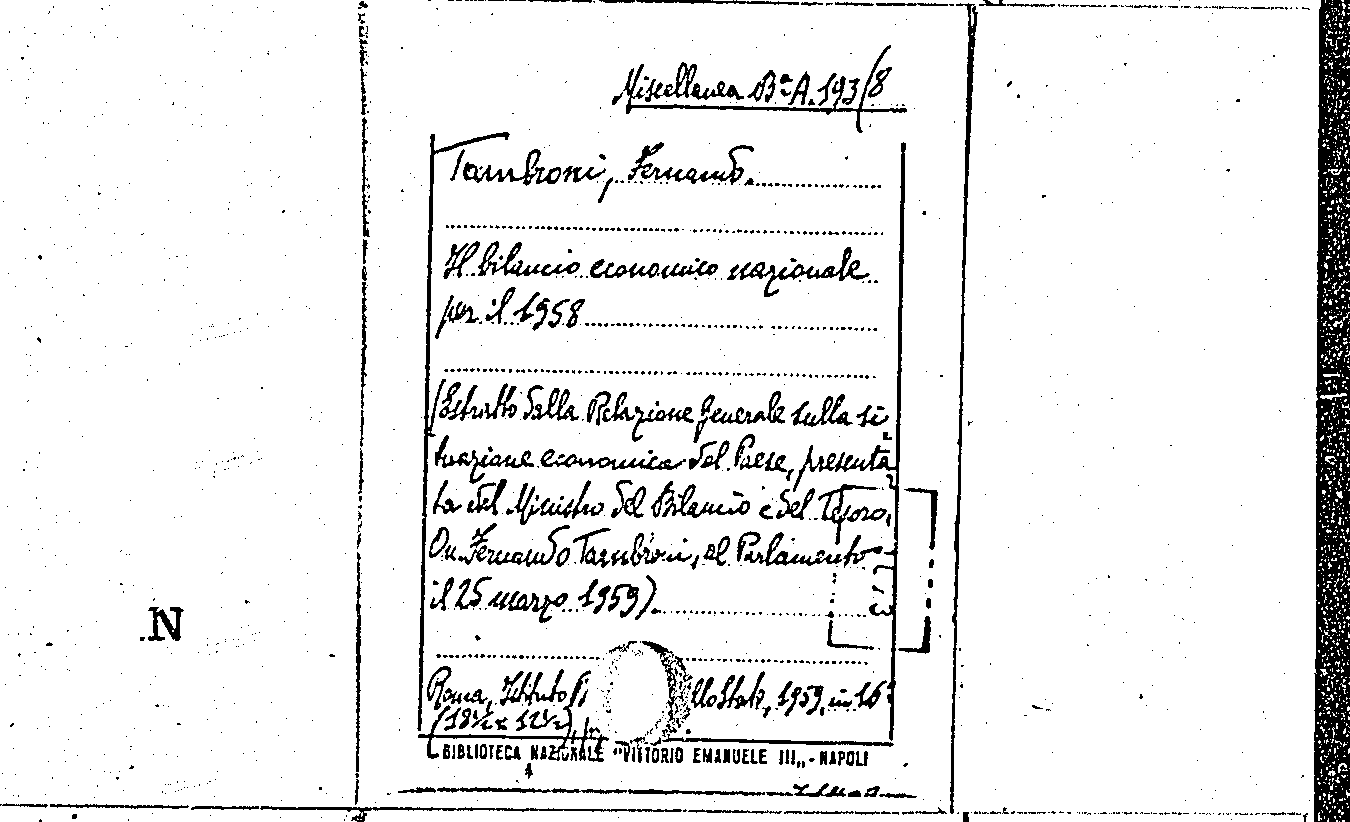 Miscellanea Bª A. 193/8
Tambroni, Fernando.
Il bilancio economico nazionale
per il 1958
(Estratto dalla Relazione Generale sulla si
tuazione economica del Paese, presenta
ta dal Ministro del Bilancio e del Tesoro,
On. Fernando Tambroni, al Parlamento
il 25 marzo 1959).
N
Roma, Istituto llo Stato, 1959, in 16º
(18½ x 12½),
BIBLIOTECA NAZIONALE "VITTORIO EMANUELE III„ - NAPOLI